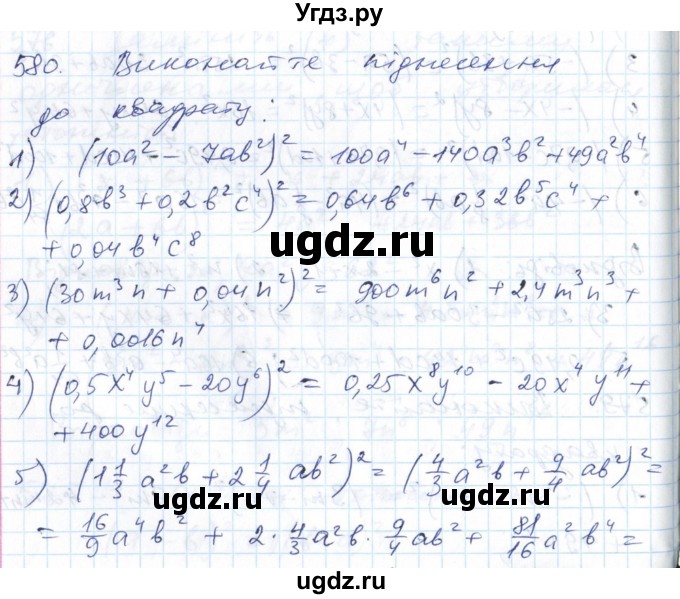 Угдз.ру
580. Виконайте піднесення
до квадрату:
1) (10a² - 7ab²)² = 100a⁴ - 140a³b² + 49a²b⁴
2) (0,8b³ + 0,2b²c⁴)² = 0,64b⁶ + 0,32b⁵c⁴ +
+ 0,04b⁴c⁸
ugdz.ru
3) (30m³n + 0,04n²)² = 900m⁶n² + 2,4m³n³ +
+ 0,0016n⁴
4) (0,5x⁴y⁵ - 20y⁶)² = 0,25x⁸y¹⁰ - 20x⁴y¹¹ +
+ 400y¹²
ugdz.ru
5) (1 1/3 a²b + 2 1/4 ab²)² = (4/3 a²b + 9/4 ab²)² =
ugdz.ru ugdz.ru
= 16/9 a⁴b² + 2 · 4/3 a²b · 9/4 ab² + 81/16 a²b⁴ =
ugdz.ru